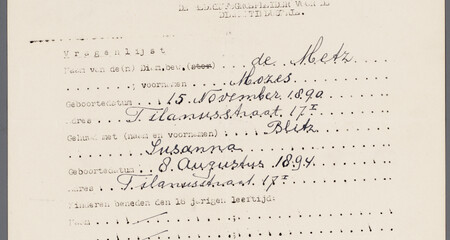 Vragenlijst
Naam van de(n) Dienbew.(ster) de Metz
; voornamen Mozes
Geboortedatum 15 November 1890
Adres Tilanusstraat 17 I
Gehuwd met (naam en voornamen) Blitz
Susanna
Geboortedatum 8 Augustus 1894
Adres Tilanusstraat 17 I
Kinderen beneden den 16 jarigen leeftijd:
Naam